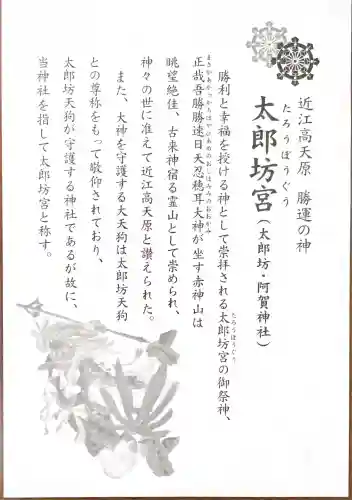 近江高天原 勝運の神
たろうぼうぐう
太郎坊宮(太郎坊・阿賀神社)
勝利と幸福を授ける神として崇拝される太郎坊宮の御祭神、
たろうぼうぐう
まさかあかつかちはやひあめのおしほみみのおおかみ
正哉吾勝勝速日天忍穂耳大神が坐す赤神山は
眺望絶佳、古来神宿る霊山として崇められ、
神々の世に准えて近江高天原と讃えられた。
また、大神を守護する大天狗は太郎坊天狗
との尊称をもって敬仰されており、
太郎坊天狗が守護する神社であるが故に、
当神社を指して太郎坊宮と称す。